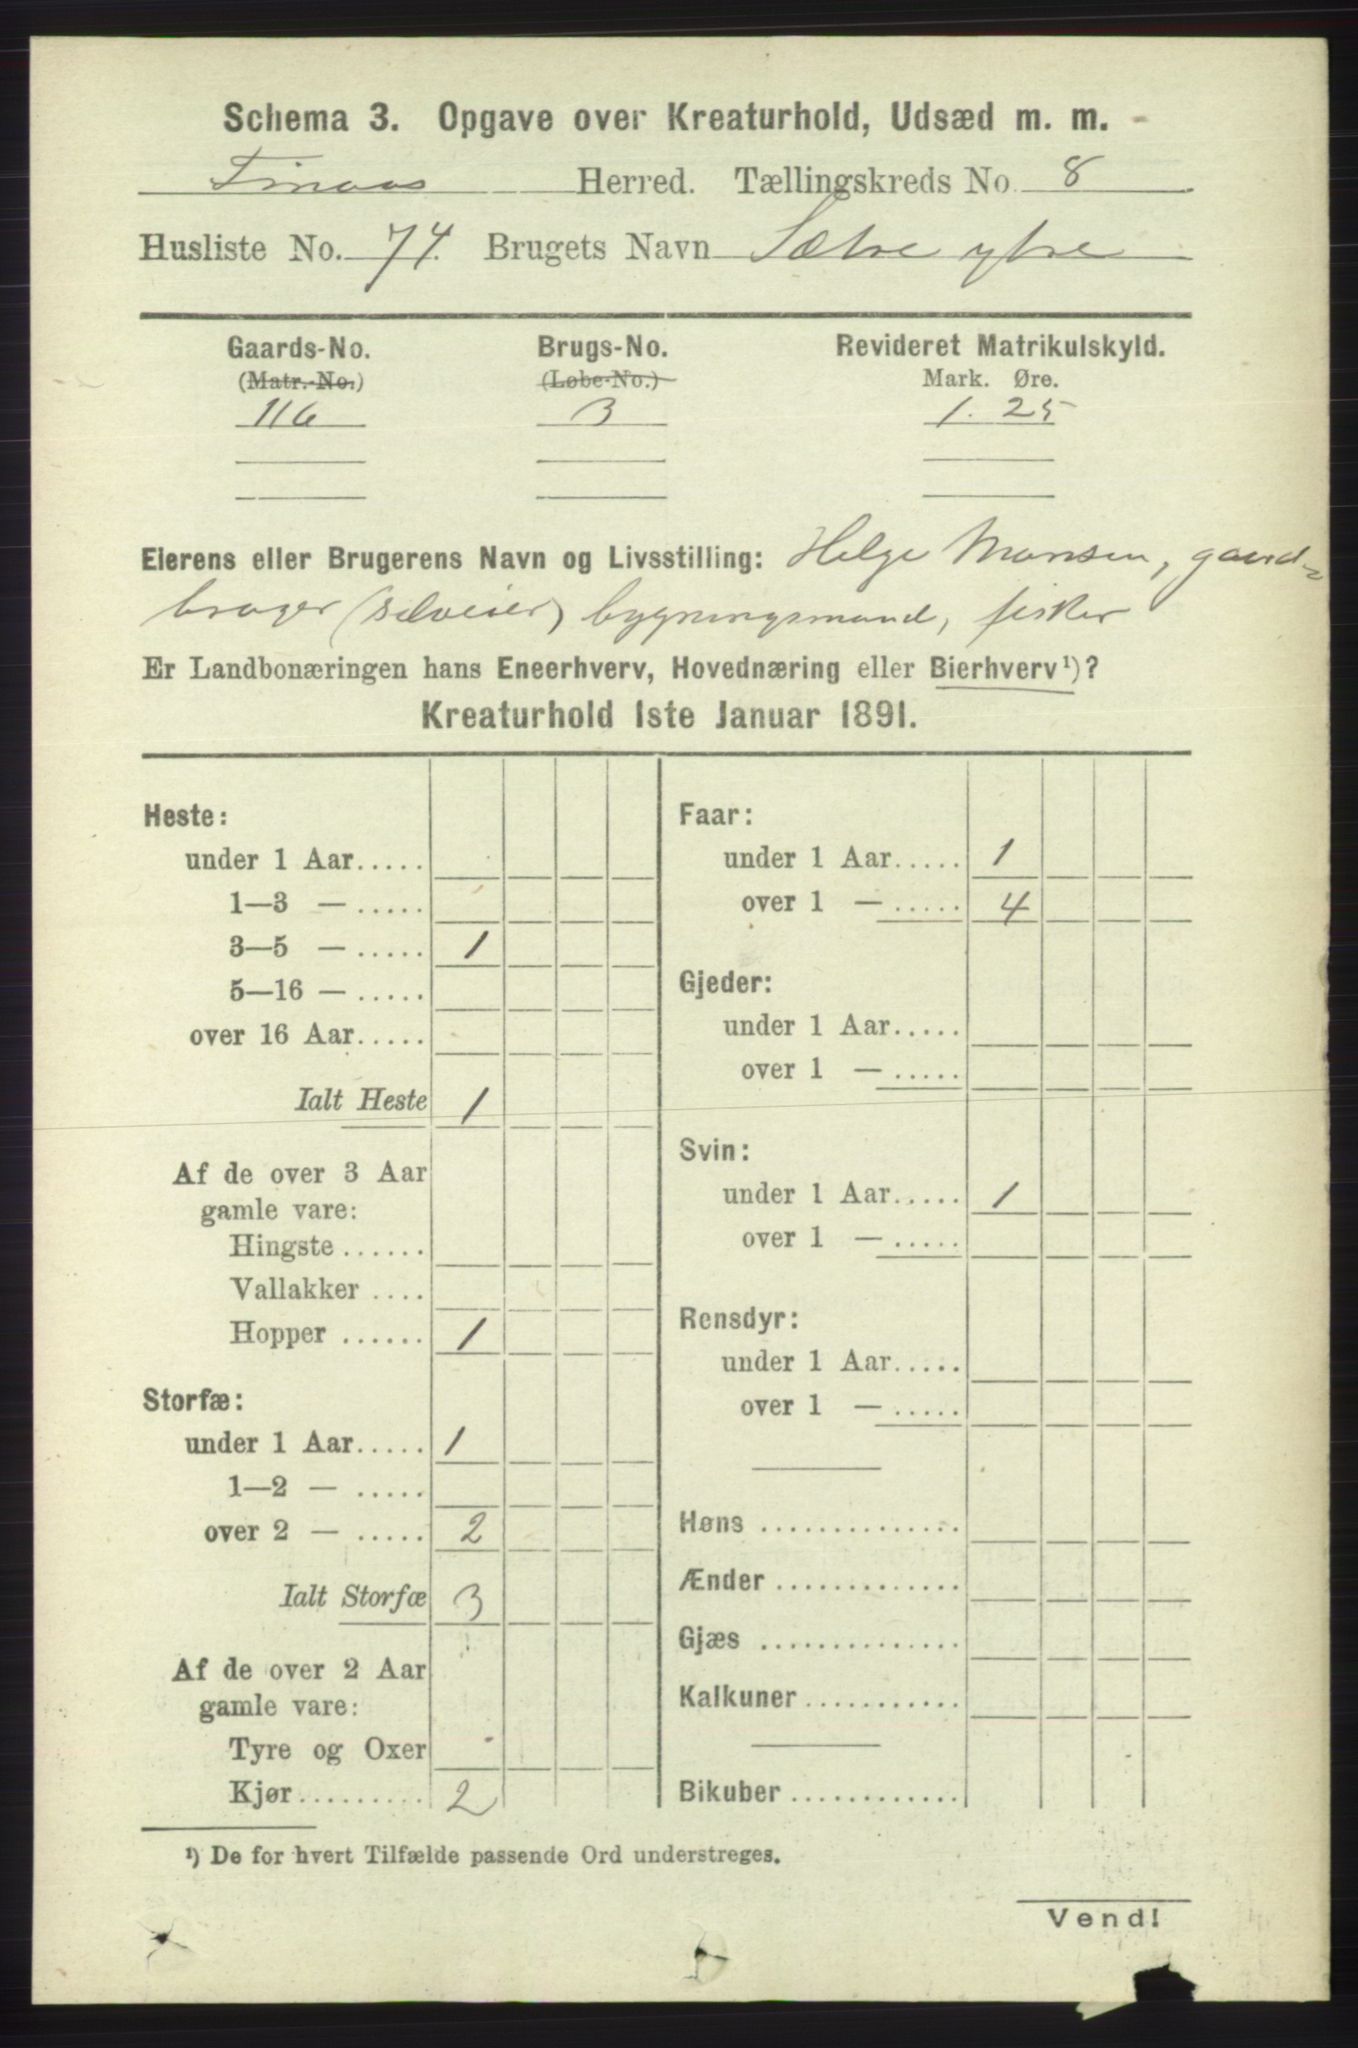 Schema 3. Opgave over Kreaturhold, Udsæd m. m.
Finaas Herred. Tællingskreds No. 8
Husliste No. 74. Brugets Navn Sætre ytre
Gaards-No. Brugs-No. Revideret Matrikulskyld.
(Matr.-No.) (Løbe-No.) Mark. Øre.
116 3 1.25
Eierens eller Brugerens Navn og Livsstilling: Helge Monsen, gaard-
bruger (selveier) bygningsmand, fisker
Er Landbonæringen hans Eneerhverv, Hovednæring eller Bierhverv¹)?
Kreaturhold 1ste Januar 1891.
Heste:
under 1 Aar.....
1—3 — .....
3—5 — ..... 1
5—16 — .....
over 16 Aar.....
Ialt Heste 1
Af de over 3 Aar
gamle vare:
Hingste ......
Vallakker ....
Hopper ...... 1
Storfæ:
under 1 Aar..... 1
1—2 — .....
over 2 — ..... 2
Ialt Storfæ 3
Af de over 2 Aar
gamle vare:
Tyre og Oxer
Kjør......... 2
Faar:
under 1 Aar..... 1
over 1 — ..... 4
Gjeder:
under 1 Aar.....
over 1 — .....
Svin:
under 1 Aar..... 1
over 1 — .....
Rensdyr:
under 1 Aar.....
over 1 — .....
Høns ..............
Ænder .............
Gjæs ..............
Kalkuner...........
Bikuber ............
¹) De for hvert Tilfælde passende Ord understreges.
Vend!